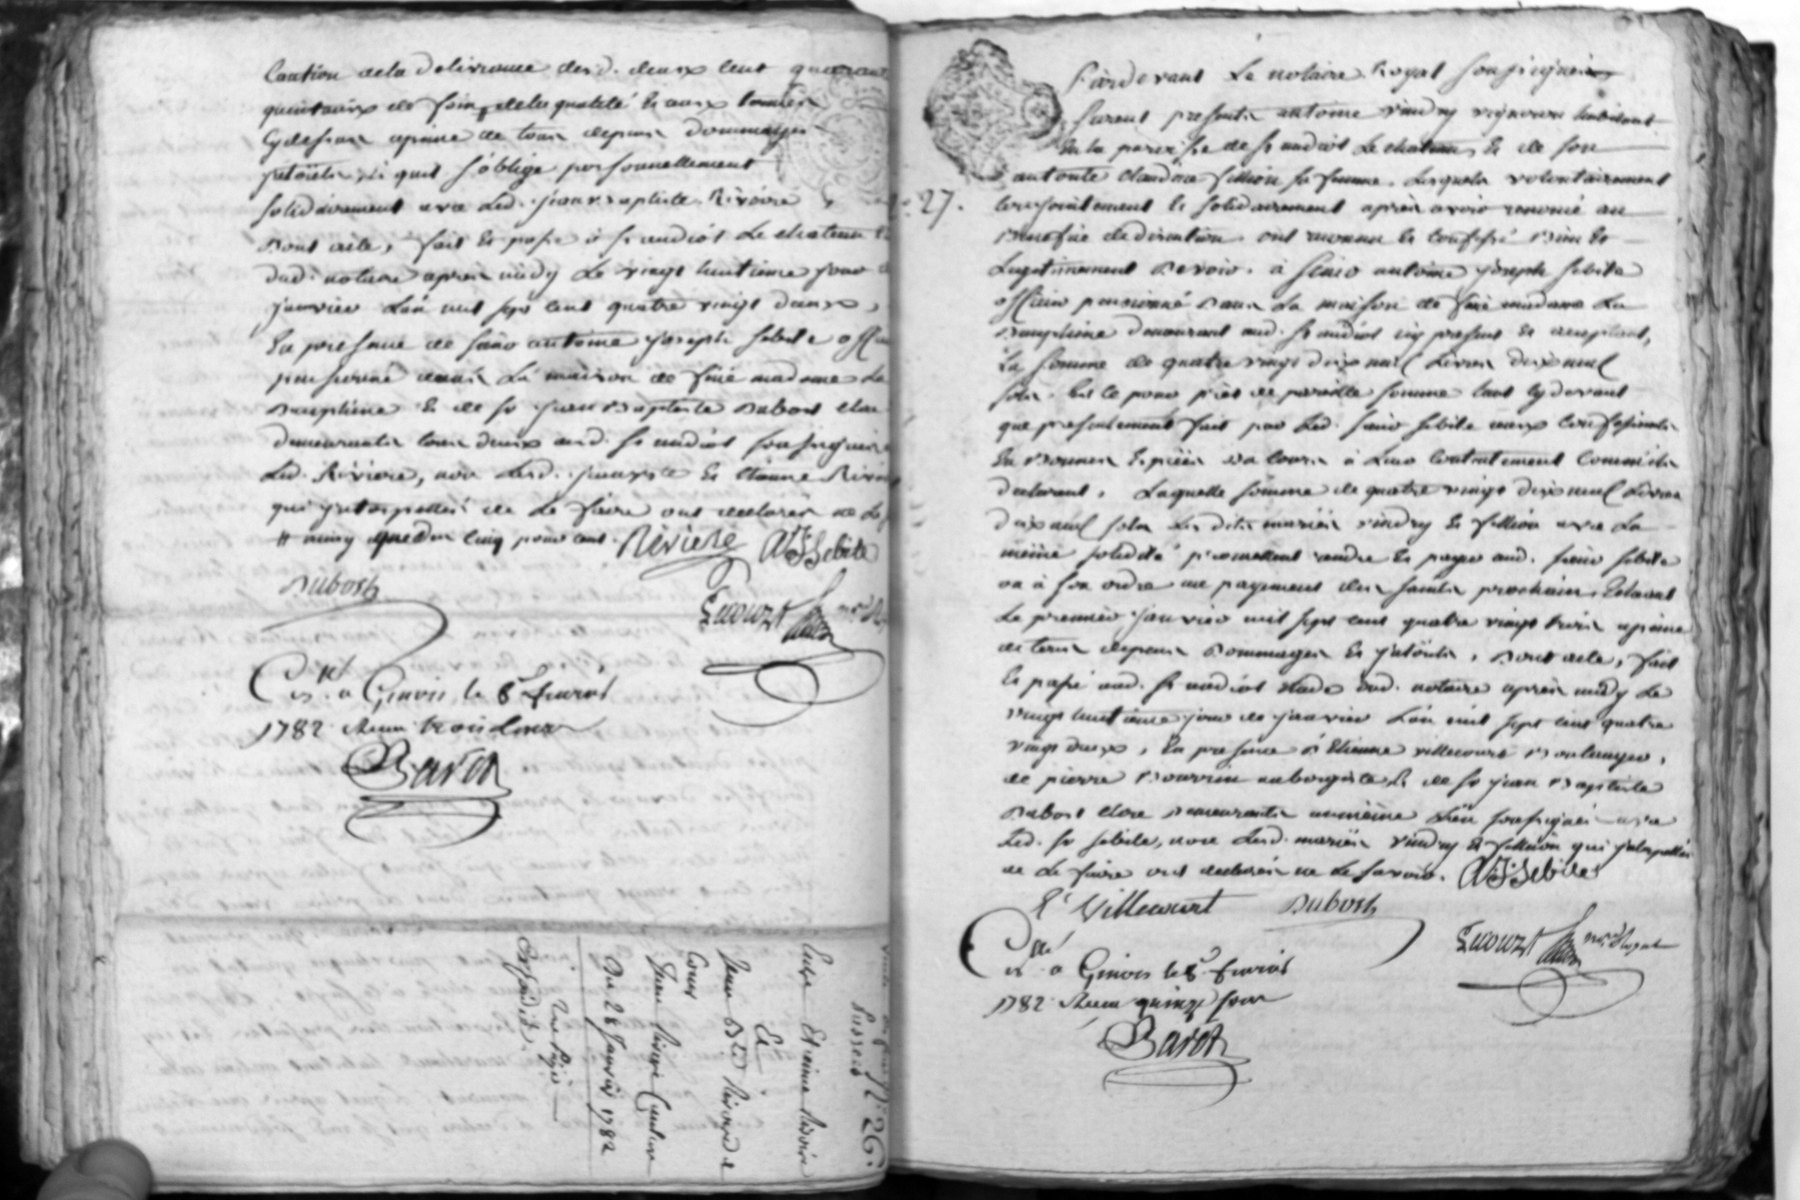 Caution de la delivrance desd. deux cent quarante
quintaux de foin de la qualité et aux termes
cy dessus apeine de tous depens dommages
jnterets, à quoi s'oblige personnellement
solidairement avec led. jean Baptiste Rivoire
Dont acte, fait et passé à st andiol le chateau
dud. notaire apres midy le vingt huitieme jour de
janvier l'an mil sept cent quatre vingt deux,
En presence de sieur antoine joseph sebile off
pensionné dans la maison de feüe madame La
Dauphine et de sr jean Baptiste Dubost clerc
demeurants tous deux aud. st andiol soussignés
Led. Riviere, non lesd. jean Bte et Etienne Rivoire
qui jnterpellés de le faire ont declarés ne le
Riviere AJSebile
Dubost
Cté
1782 Reçu trois livres
Baron
N° 26.
Entre Etienne Rivoire
Et
Jean Bte Rivoire
Du 28 Janvier 1782
Expedié.
27.
Pardevant Le notaire Royal soussigné
furent presents antoine vindry vigneron habitant
En la paroisse de st andiol Le chateau, Et de son
autorité Claudine fillion sa femme, Lesquels volontairement
conjointement et solidairement après avoir renoncé au
Benefice de division ont avoüé et confessé Bien Et
Legitimement Devoir à sieur antoine joseph sebile
officier pensionné Dans La maison de feüe madame La
Dauphine demeurant aud. st andiol icy present et acceptant,
La somme de quatre vingt dix neuf Livres dix neuf
sols. Et ce pour prêt de pareille somme tant cy devant
que presentement fait par led. sieur sebile aux confessants
En Bonnes Especes De cours à Leur contentement comme ils
declarent. Laquelle somme de quatre vingt dix neuf Livres
dix neuf sols Les dits mariés vindry et fillion avec La
même solidité promettent rendre et payer aud. sieur sebile
ou à son ordre au payement des saints prochain, Echeant
Le premier janvier mil sept cent quatre vingt trois apeine
de tous depens Dommages et jnterets, Dont acte, fait
Et passé aud. st andiol Etude dud. notaire après midy Le
vingt huitieme jour de janvier L'an mil sept cent quatre
vingt deux, En presence d'Etienne villecourt Boulanger,
de pierre Bourrin aubergiste, et de sr jean Baptiste
Dubost clerc Demeurants au même Lieu soussignés avec
Led. sr sebile, non lesd. mariés vindry et fillion qui jnterpellés
de le faire ont declarés ne le savoir. AJSebile
E Villecourt Dubost
Cté
1782 Reçu quinze sous
Baron